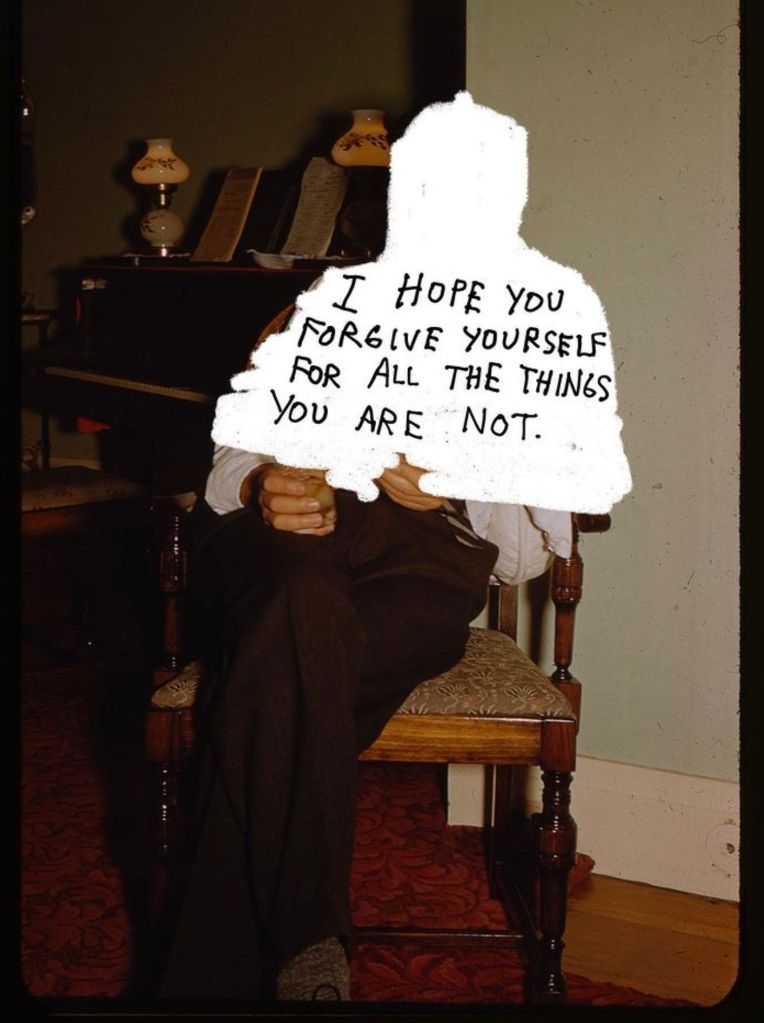 I HOPE YOU
FORGIVE YOURSELF
FOR ALL THE THINGS
YOU ARE NOT.